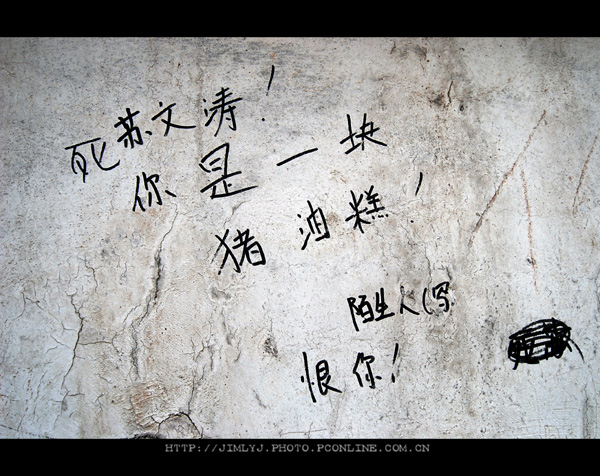 死苏文涛!
你是一块
猪油糕!
陌生人(写
恨你!
HTTP://JIMLYJ.PHOTO.PCONLINE.COM.CN